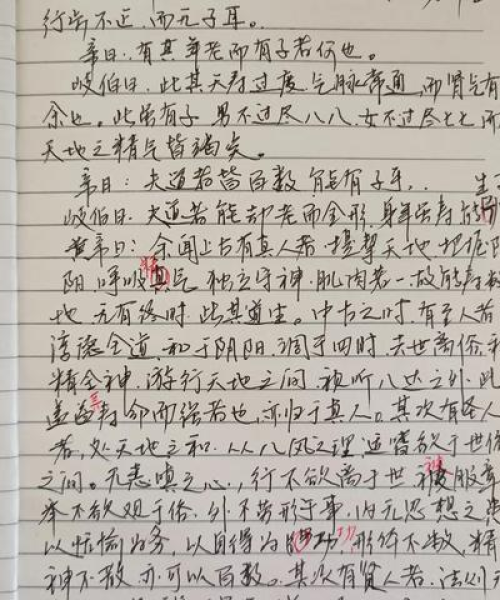 行步不正,而无子耳。
帝曰.有其年老而有子者何也。
岐伯曰.此其天寿过度.气脉常通,而肾气有
余也。此虽有子.男不过尽八八,女不过尽七七,而
天地之精气皆竭矣。
帝曰:夫道者皆百数,能有子乎..
岐伯曰.夫道者能却老而全形.身年虽寿.能
黄帝曰:余闻上古有真人者.提挈天地.把握阴
阳.呼吸精气.独立守神.肌肉若一.故能寿敝
地.无有终时.此其道生。中古之时.有至人者
淳德全道.和于阴阳.调于四时.去世离俗.积
精全神.游行天地之间.视听八达之外.此
盖益寿命而强者也.亦归于真人。其次有圣人
者,处天地之和.从八风之理.适嗜欲于世俗
之间。无恚嗔之心,行不欲离于世.被服章
举不欲观于俗.外不劳形于事.内无思想之患
以恬愉为务,以自得为功.形体不敝,精
神不散.亦可以百数。其次有贤人者.法则天